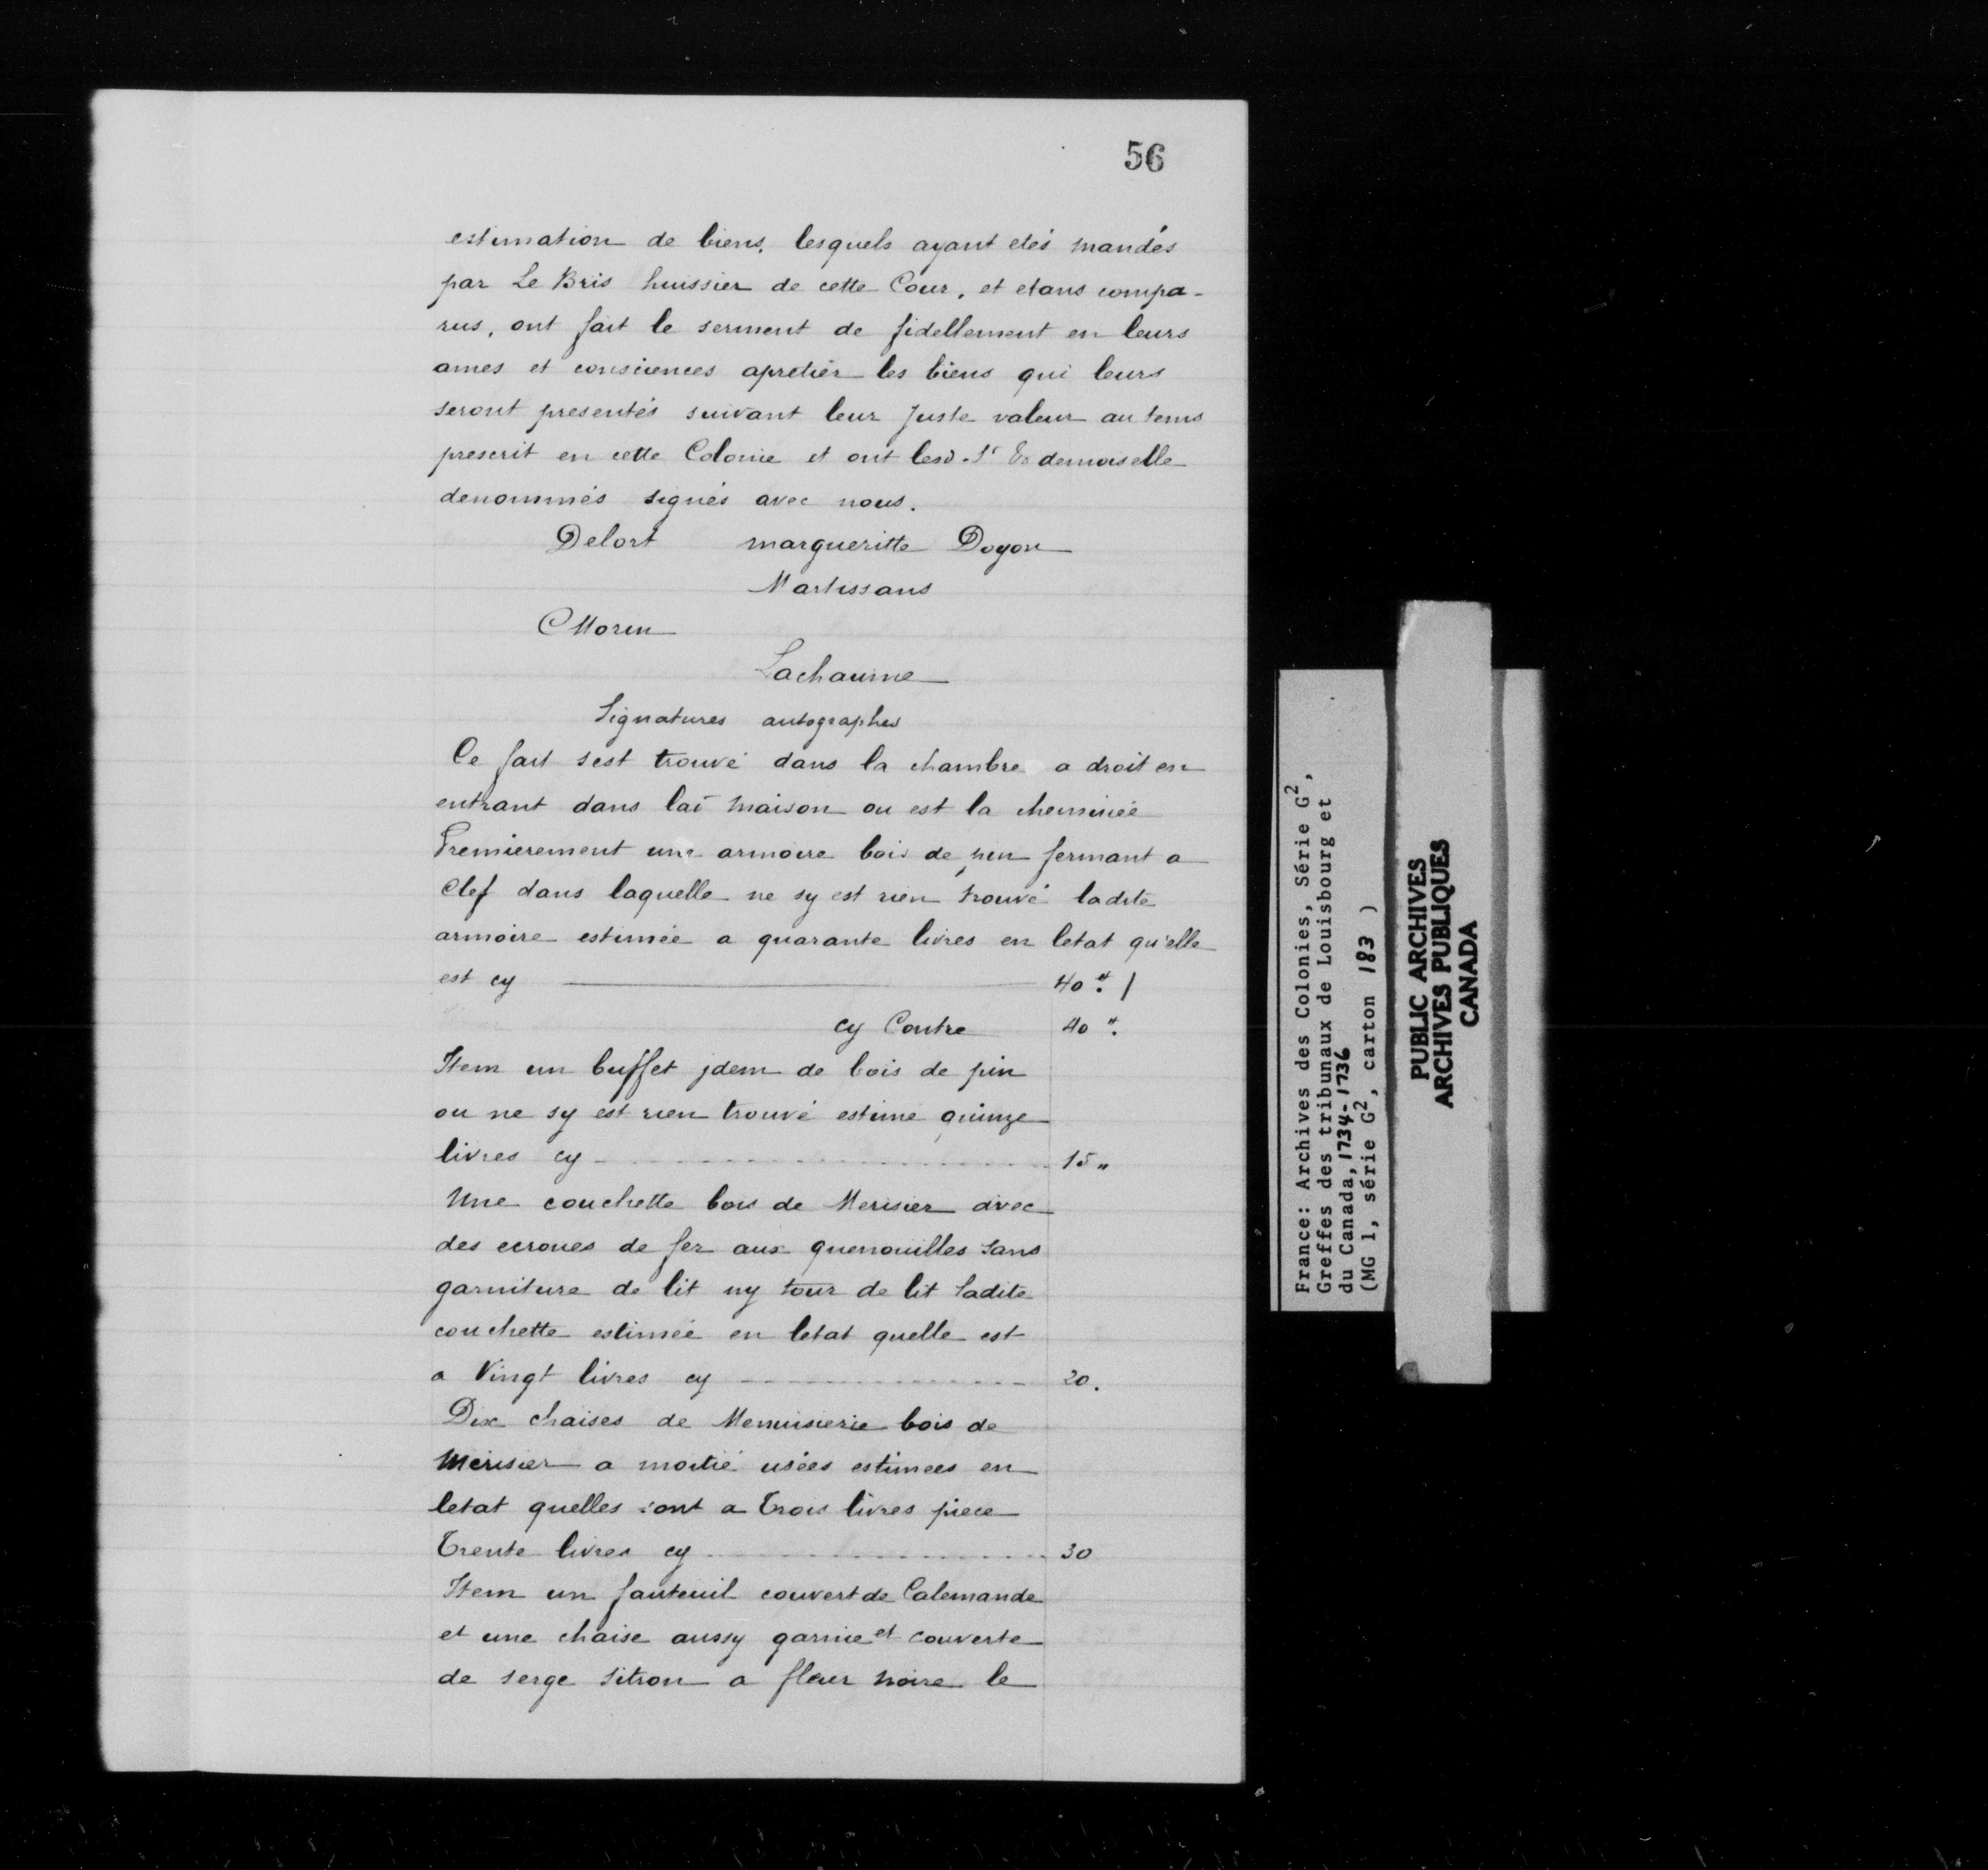 56
estimation de biens. lesquels ayant etés mandés
par Le Bris huissier de cette Cour, et etans compa-
rus, ont fait le serment de fidellement en leurs
ames et consciences apretier les biens qui leurs
seront presentés suivant leur Juste valeur au tems
prescrit en cette Colonie et ont lesd. Sr & demoiselle
denommés signés avec nous.
Delort margueritte Doyon
Martissans
CMorin
Lachaume
Signatures autographes
Ce fait sest trouvé dans la chambre a droit en
entrant dans la maison ou est la cheminée
Premierement une armoire bois de pin fermant a
Clef dans laquelle ne sy est rien trouvé ladite
armoire estimée a quarante livres en letat qu'elle
est cy 40 ". /
cy Contre 40 ".
Item un buffet jdem de bois de pin
ou ne sy est rien trouvé estime quinze
livres cy 15 "
Une couchette bois de Merisier avec
des ecroues de fer aux quenouilles sans
garniture de lit ny tour de lit ladite
couchette estimée en letat quelle est
a Vingt livres cy 20.
Dix chaises de Menuiserie bois de
Merisier a moitié usées estimees en
letat quelles sont a Trois livres piece
Trente livres cy 30
Item un fauteuil couvert de Calemande
et une chaise aussy garnie et couverte
de serge sitron a fleur noire le
France: Archives des Colonies, Série G2,
Greffes des tribunaux de Louisbourg et
du Canada, 1734-1736
(MG 1, série G2, carton 183 )
PUBLIC ARCHIVES
ARCHIVES PUBLIQUES
CANADA